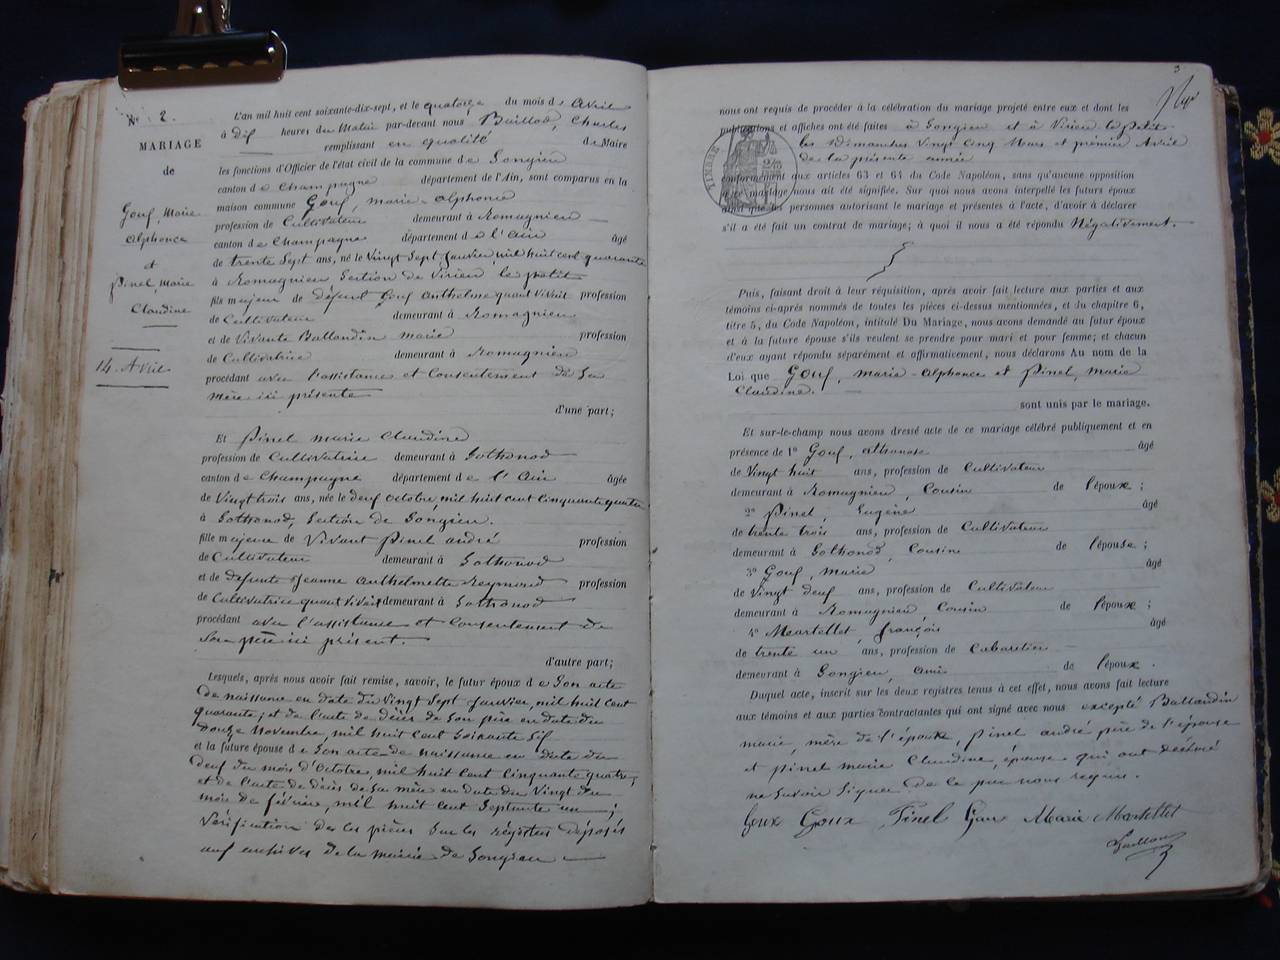 N° 2.
MARIAGE
de
Goux, Marie
Alphonce
et
Pinel, Marie
Claudine
14. Avril
L'an mil huit cent soixante-dix-sept, et le quatorze du mois d'Avril
à dix heures du Matin par-devant nous Baillod, Charles
remplissant en qualité de Maire
les fonctions d'Officier de l'état civil de la commune de Songieu
canton de Champagne département de l'Ain, sont comparus en la
maison commune Goux, marie-alphonce
profession de Cultivateur demeurant à Romagnieu
canton de Champagne département de l'Ain âgé
de trente Sept ans, né le Vingt Sept Janvier, mil huit cent quarante
à Romagnieu, Section de Virieu le petit
fils majeur de défunt Goux Anthelme quant Vivait profession
de Cultivateur demeurant à Romagnieu
et de Vivante Ballandin marie profession
de Cultivatrice demeurant à Romagnieu
procédant avec l'assistance et Consentement de Sa
mère ici présente
d'une part;
Et Pinel marie Claudine
profession de Cultivatrice demeurant à Sothonod
canton de Champagne département de l'Ain âgée
de Vingt trois ans, née le deux octobre, mil huit cent cinquante quatre
à Sothonod, Section de Songieu.
fille majeure de Vivant Pinel andré profession
de Cultivateur demeurant à Sothonod
et de défunte Jeanne Anthelmette Reymond profession
de Cultivatrice quant Vivait demeurant à Sothonod
procédant avec l'assistance et Consentement de
Son père ici présent.
d'autre part;
Lesquels, après nous avoir fait remise, savoir, le futur époux de Son acte
de naissance en date du Vingt Sept Janvier, mil huit cent
quarante; et de l'acte de décès de Son père en date du
douze Novembre, mil huit cent Soixante Six
et la future épouse de Son acte de naissance en date du
deux du mois d'Octobre, mil huit cent cinquante quatre;
et de l'acte de décès de Sa mère en date du Vingt du
mois de février, mil huit cent Septante un;
Vérification de ces pièces Sur les régistres déposés
aux archives de la mairie de Songieu
3
nous ont requis de procéder à la célébration du mariage projeté entre eux et dont les
publications et affiches ont été faites à Songieu et à Virieu le petit
les dimanches Vingt Cinq Mars et premier Avril
de la présente année
TIMBRE
conformément aux articles 63 et 64 du Code Napoléon, sans qu'aucune opposition
à ce mariage nous ait été signifiée. Sur quoi nous avons interpellé les futurs époux
ainsi que les personnes autorisant le mariage et présentes à l'acte, d'avoir à déclarer
s'il a été fait un contrat de mariage; à quoi il nous a été répondu Négativement.
Puis, faisant droit à leur réquisition, après avoir fait lecture aux parties et aux
témoins ci-après nommés de toutes les pièces ci-dessus mentionnées, et du chapitre 6,
titre 5, du Code Napoléon, intitulé Du Mariage, nous avons demandé au futur époux
et à la future épouse s'ils veulent se prendre pour mari et pour femme; et chacun
d'eux ayant répondu séparément et affirmativement, nous déclarons Au nom de la
Loi que Goux, Marie-Alphonce et Pinel, Marie
Claudine.
sont unis par le mariage.
Et sur-le-champ nous avons dressé acte de ce mariage célébré publiquement et en
présence de 1° Goux, athanase âgé
de Vingt huit ans, profession de Cultivateur
demeurant à Romagnieu, Cousin de l'époux;
2° Pinel, Eugène âgé
de trente trois ans, profession de Cultivateur
demeurant à Sothonod, Cousin de l'épouse;
3° Goux, Marie âgé
de Vingt deux ans, profession de Cultivateur
demeurant à Romagnieu Cousin de l'époux;
4° Martellet, françois âgé
de trente un ans, profession de Cabaretier
demeurant à Songieu, ami de l'époux.
Duquel acte, inscrit sur les deux registres tenus à cet effet, nous avons fait lecture
aux témoins et aux parties contractantes qui ont signé avec nous excepté Ballandin
marie, mère de l'époux, Pinel andré père de l'épouse
et Pinel marie Claudine, épouse qui ont déclaré
ne Savoir Signer de ce par nous requis.
Goux Goux Pinel Goux Marie Martellet
Baillod